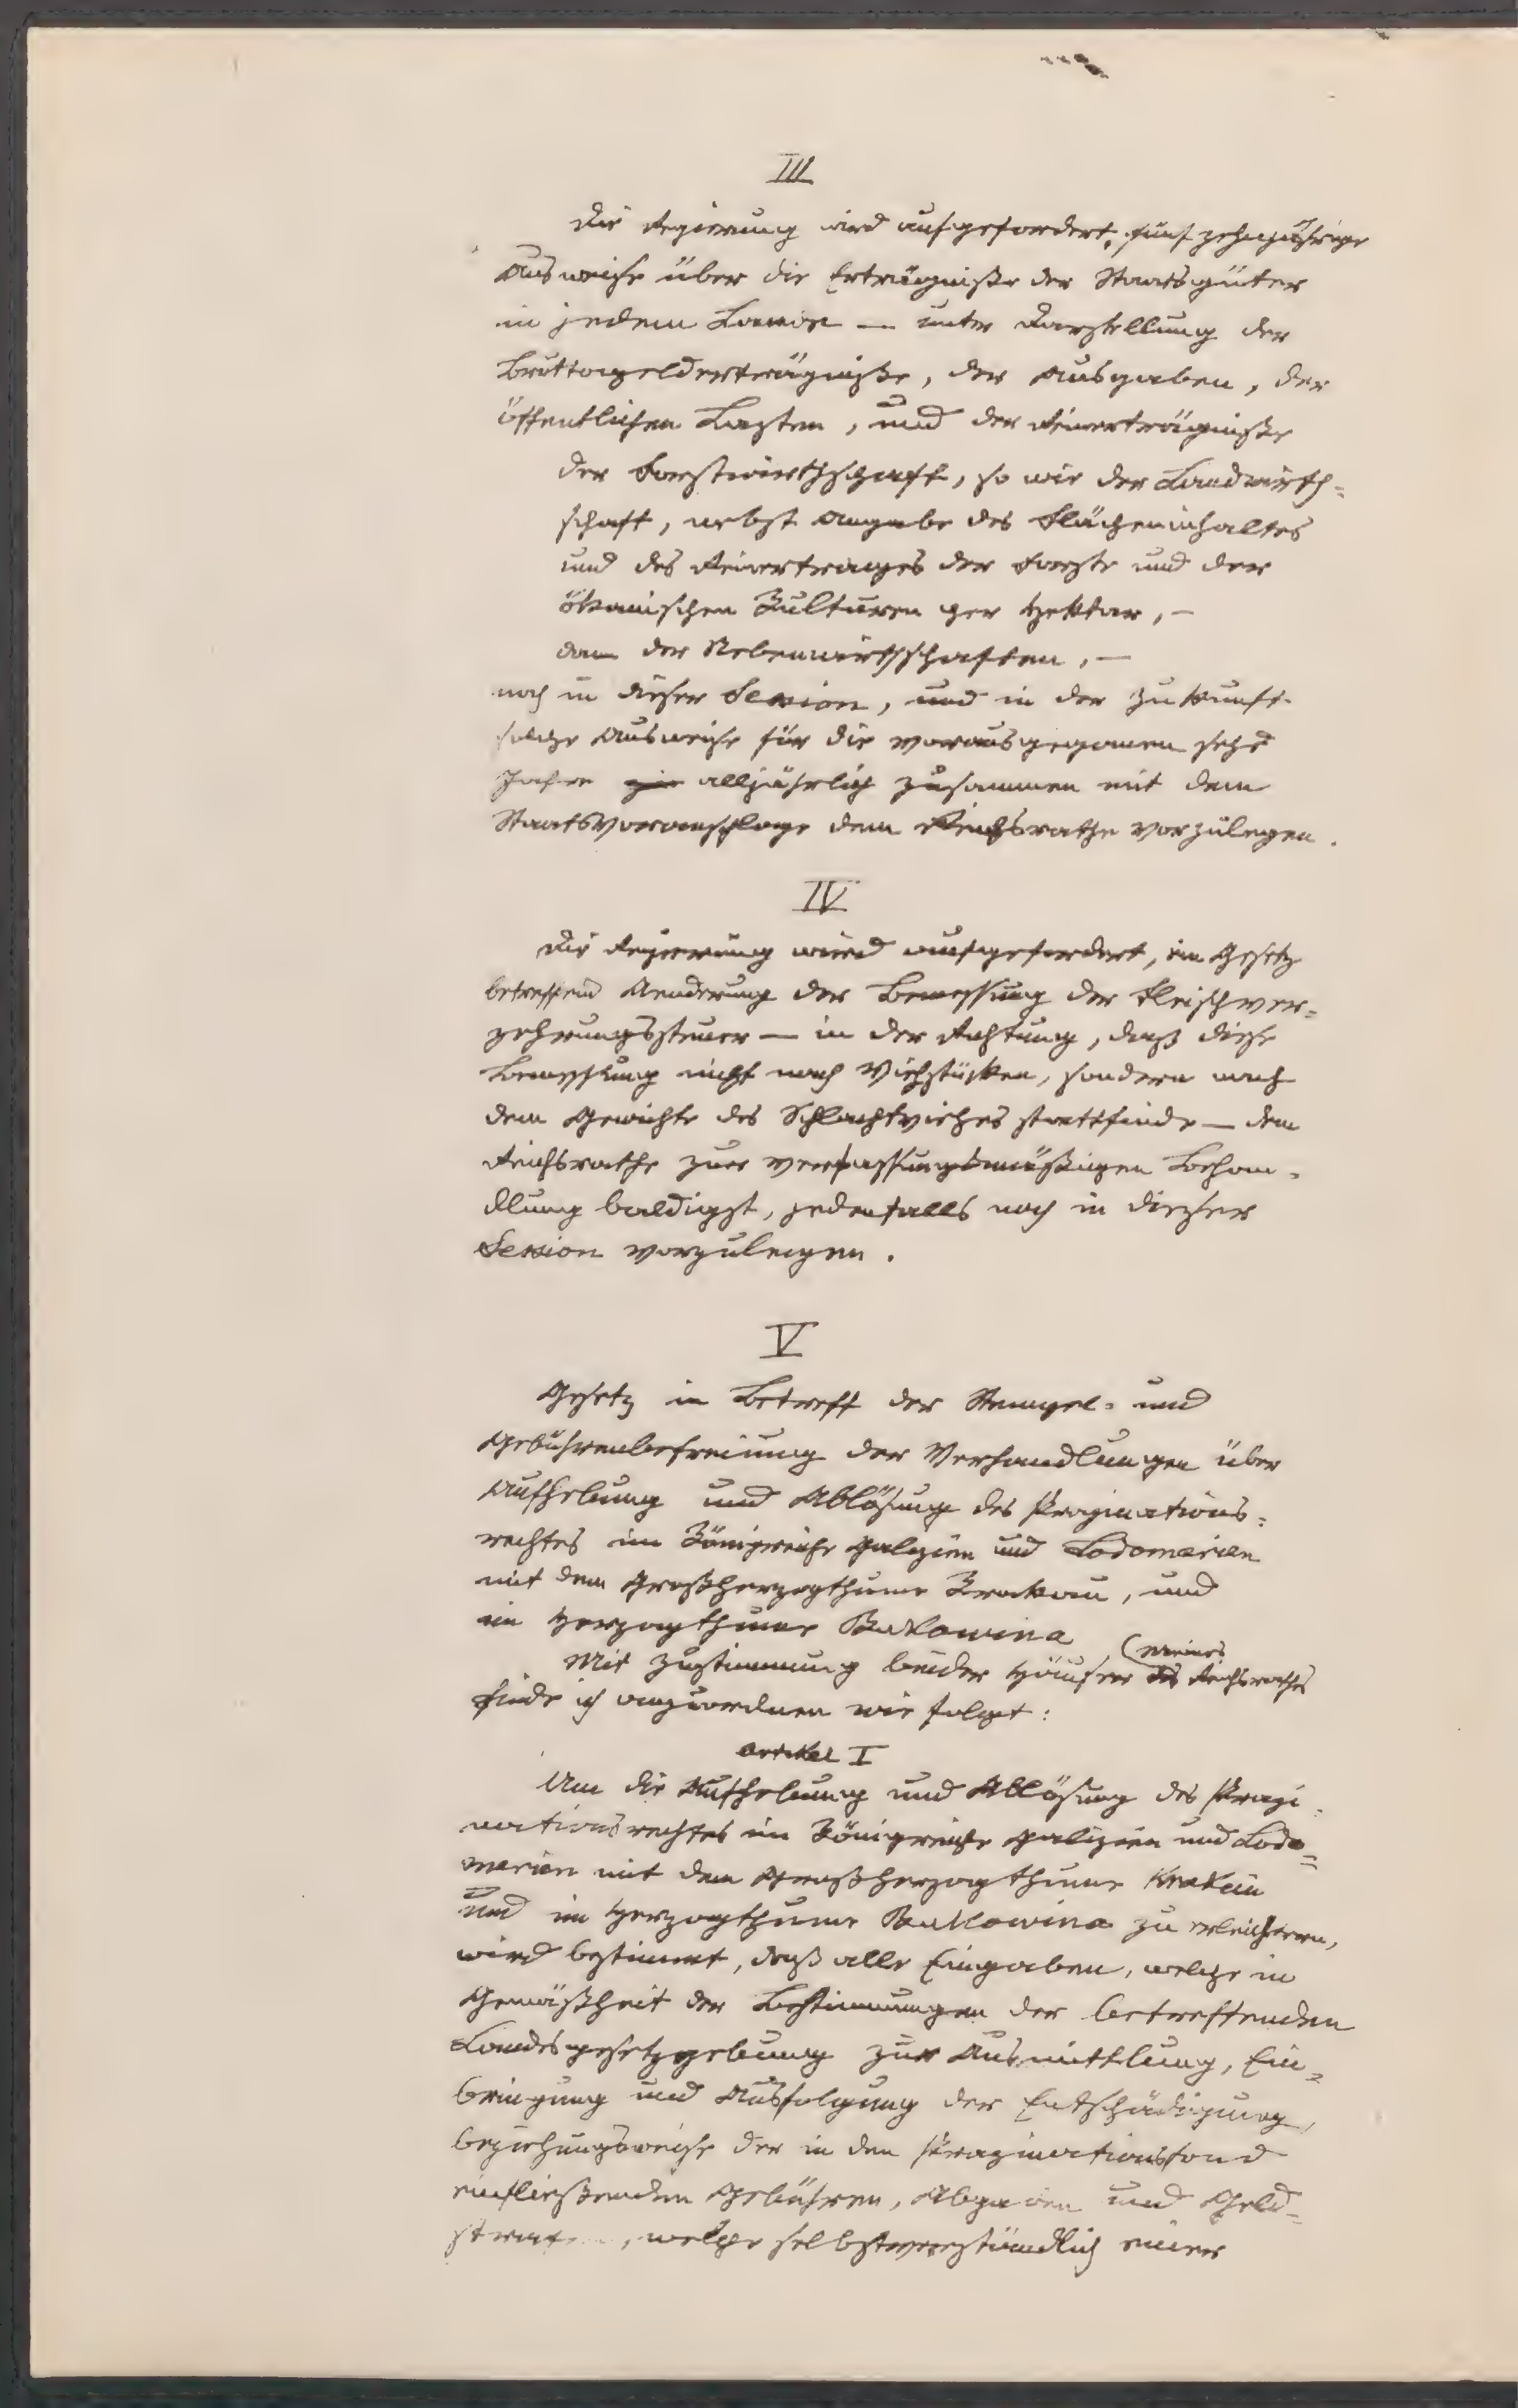 III
Die Regierung wird aufgefordert, fünfzehnjährige
Ausweise über die Erträgniße der Staatsgüter
in jedem Lande — unter Darstellung der
Bruttogelderträgniße, der Ausgaben, der
öffentlichen Lasten, und der Reinerträgniße
der Forstwirthschaft, so wie der Landwirth=
schaft, nebst Angabe des Flächeninhaltes
und des Reinertrages der Forste und der
ökonischen Kulturen per Hektar, —
dan der Nebenwirthschaften, —
noch in dieser Session, und in der Zukunft
solche Ausweise für die vorausgegangenen sechs
Jahre alljährlich zusammen mit dem
Staatsvoranschlage dem Reichsrathe vorzulegen.
IV
Die Regierung wird aufgefordert, ein Gesetz
betreffend Aenderung der Bemessung der Fleischver=
zehrungssteuer — in der Richtung, daß diese
Bemessung nicht nach Viehstücken, sondern nach
dem Gewichte des Schlachtviehes stattfinde — dem
Reichsrathe zur verfassungsmäßigen Behan=
dlung baldigst, jedenfalls noch in dieser
Session vorzulegen.
V
Gesetz in Betreff der Stempel= und
Gebührenbefreiung der Verhandlungen über
Aufhebung und Ablösung des Propinations=
rechtes im Königreiche Galizien und Lodomerien
mit dem Großherzogthume Krakau, und
im Herzogthume Bukowina
Mit Zustimmung beider Häuser des meines Reichsrathes
finde ich anzuordnen wie folgt:
Artikel I
Um die Aufhebung und Ablösung des Propi=
nationsrechtes im Königreiche Galizien und Lodo=
merien mit dem Großherzogthume Krakau
und im Herzogthume Bukowina zu erleichtern,
wird bestimmt, daß alle Eingaben, welche in
Gemäßheit der Bestimmungen der betreffenden
Landesgesetzgebung zur Ausmittlung, Ein=
bringung und Ausfolgung der Entschädigung,
beziehungsweise der in den Propinationsfond
einfließenden Gebühren, Abgaben und Geld=
welche selbstverständlich einer